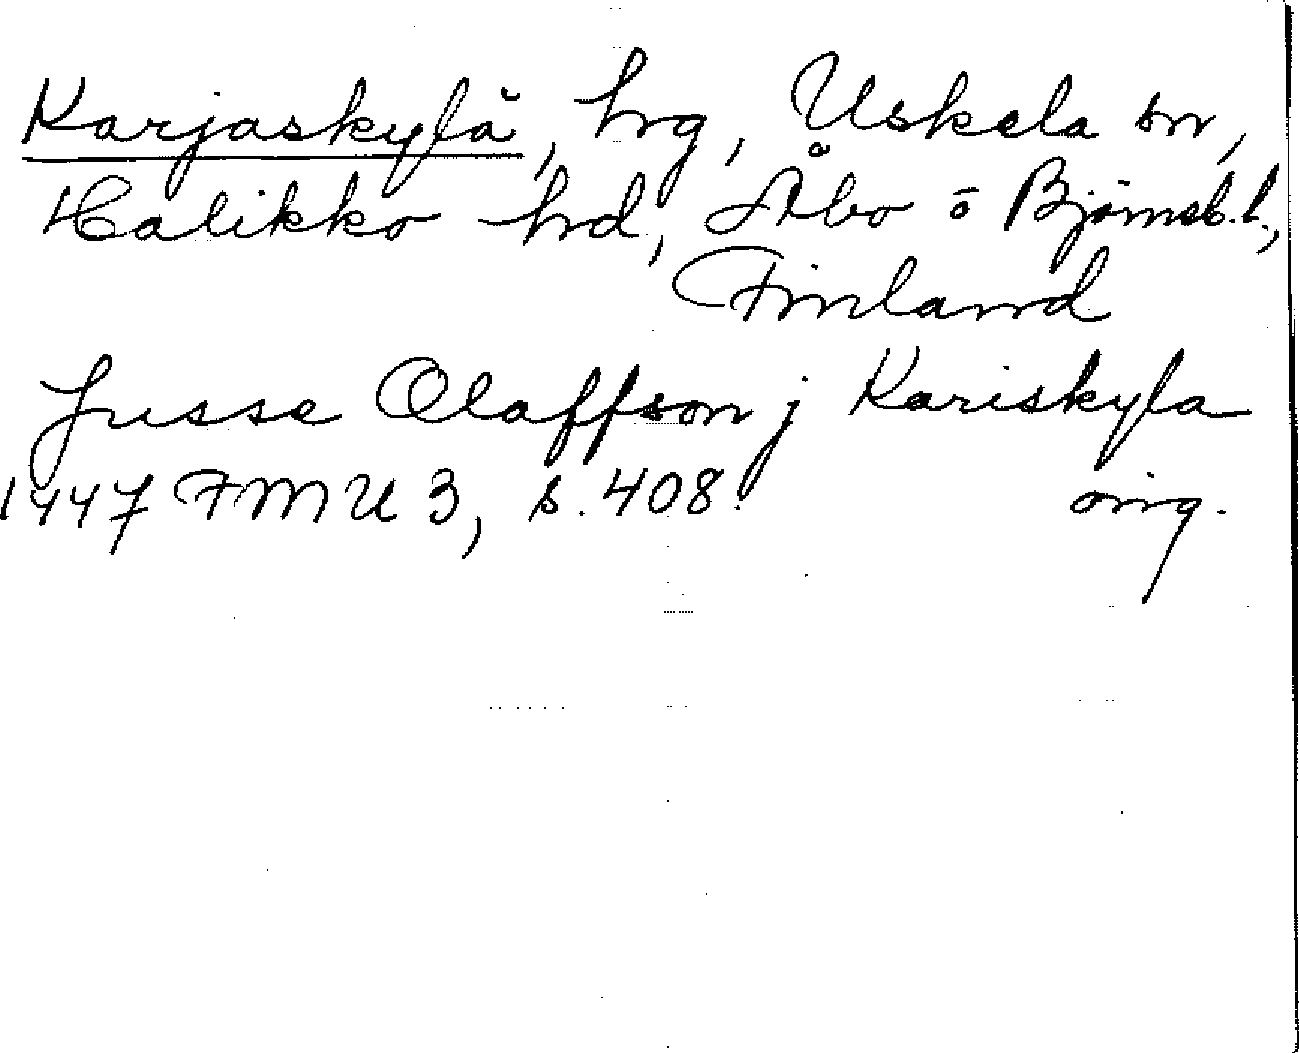 Karjaskylä, hrg, Uskela sn,
Halikko hd, Åbo o Björneb.l.,
Finland
Jusse Olaffson j Kariskyla
1447 FMU 3, s. 408. orig.